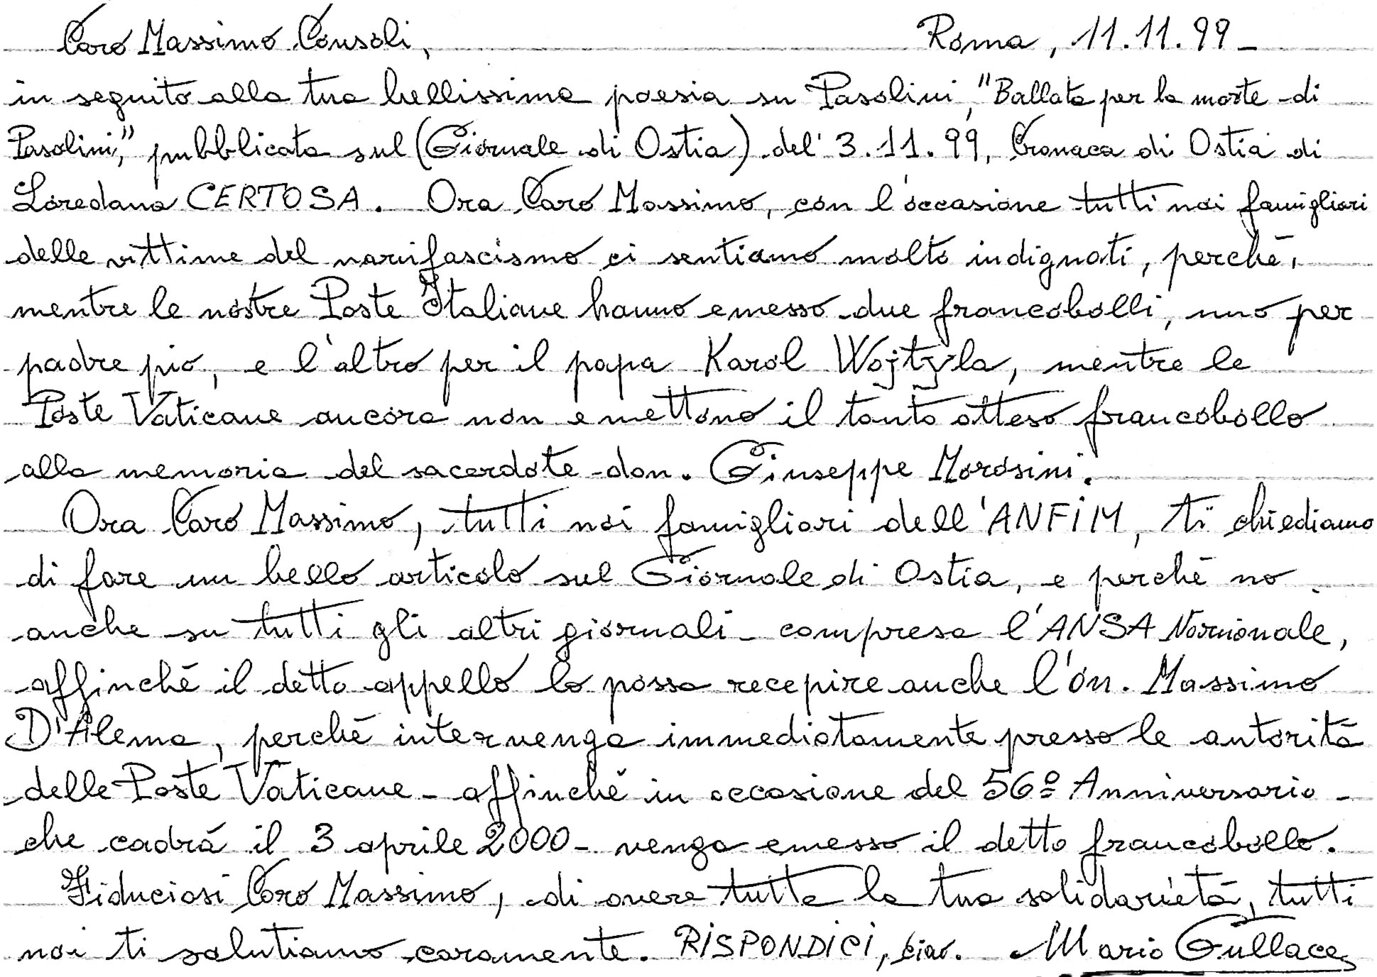 Caro Massimo Consoli, Roma, 11.11.99-
in seguito alla tua bellissima poesia su Pasolini, "Ballata per la morte di
Pasolini", pubblicata sul (Giornale di Ostia) del 3.11.99, Cronaca di Ostia di
Loredana CERTOSA. Ora Caro Massimo, con l'occasione tutti noi famigliari
delle vittime del nazifascismo ci sentiamo molto indignati, perché,
mentre le nostre Poste Italiane hanno emesso due francobolli, uno per
padre pio, e l'altro per il papa Karol Wojtyla, mentre le
Poste Vaticane ancora non emettono il tanto atteso francobollo
alla memoria del sacerdote don. Giuseppe Morosini.
Ora Caro Massimo, tutti noi famigliari dell'ANFIM, ti chiediamo
di fare un bello articolo sul Giornale di Ostia, e perché no
anche su tutti gli altri giornali - compresa l'ANSA Nazionale,
affinché il detto appello lo possa recepire anche l'on. Massimo
D'Alema, perché intervenga immediatamente presso le autorità
delle Poste Vaticane - affinché in occasione del 56º Anniversario -
che cadrá il 3 aprile 2000 - venga emesso il detto francobollo.
Fiduciosi Caro Massimo, di avere tutta la tua solidarietà, tutti
noi ti salutiamo caramente. RISPONDICI, ciao. Mario Gullace